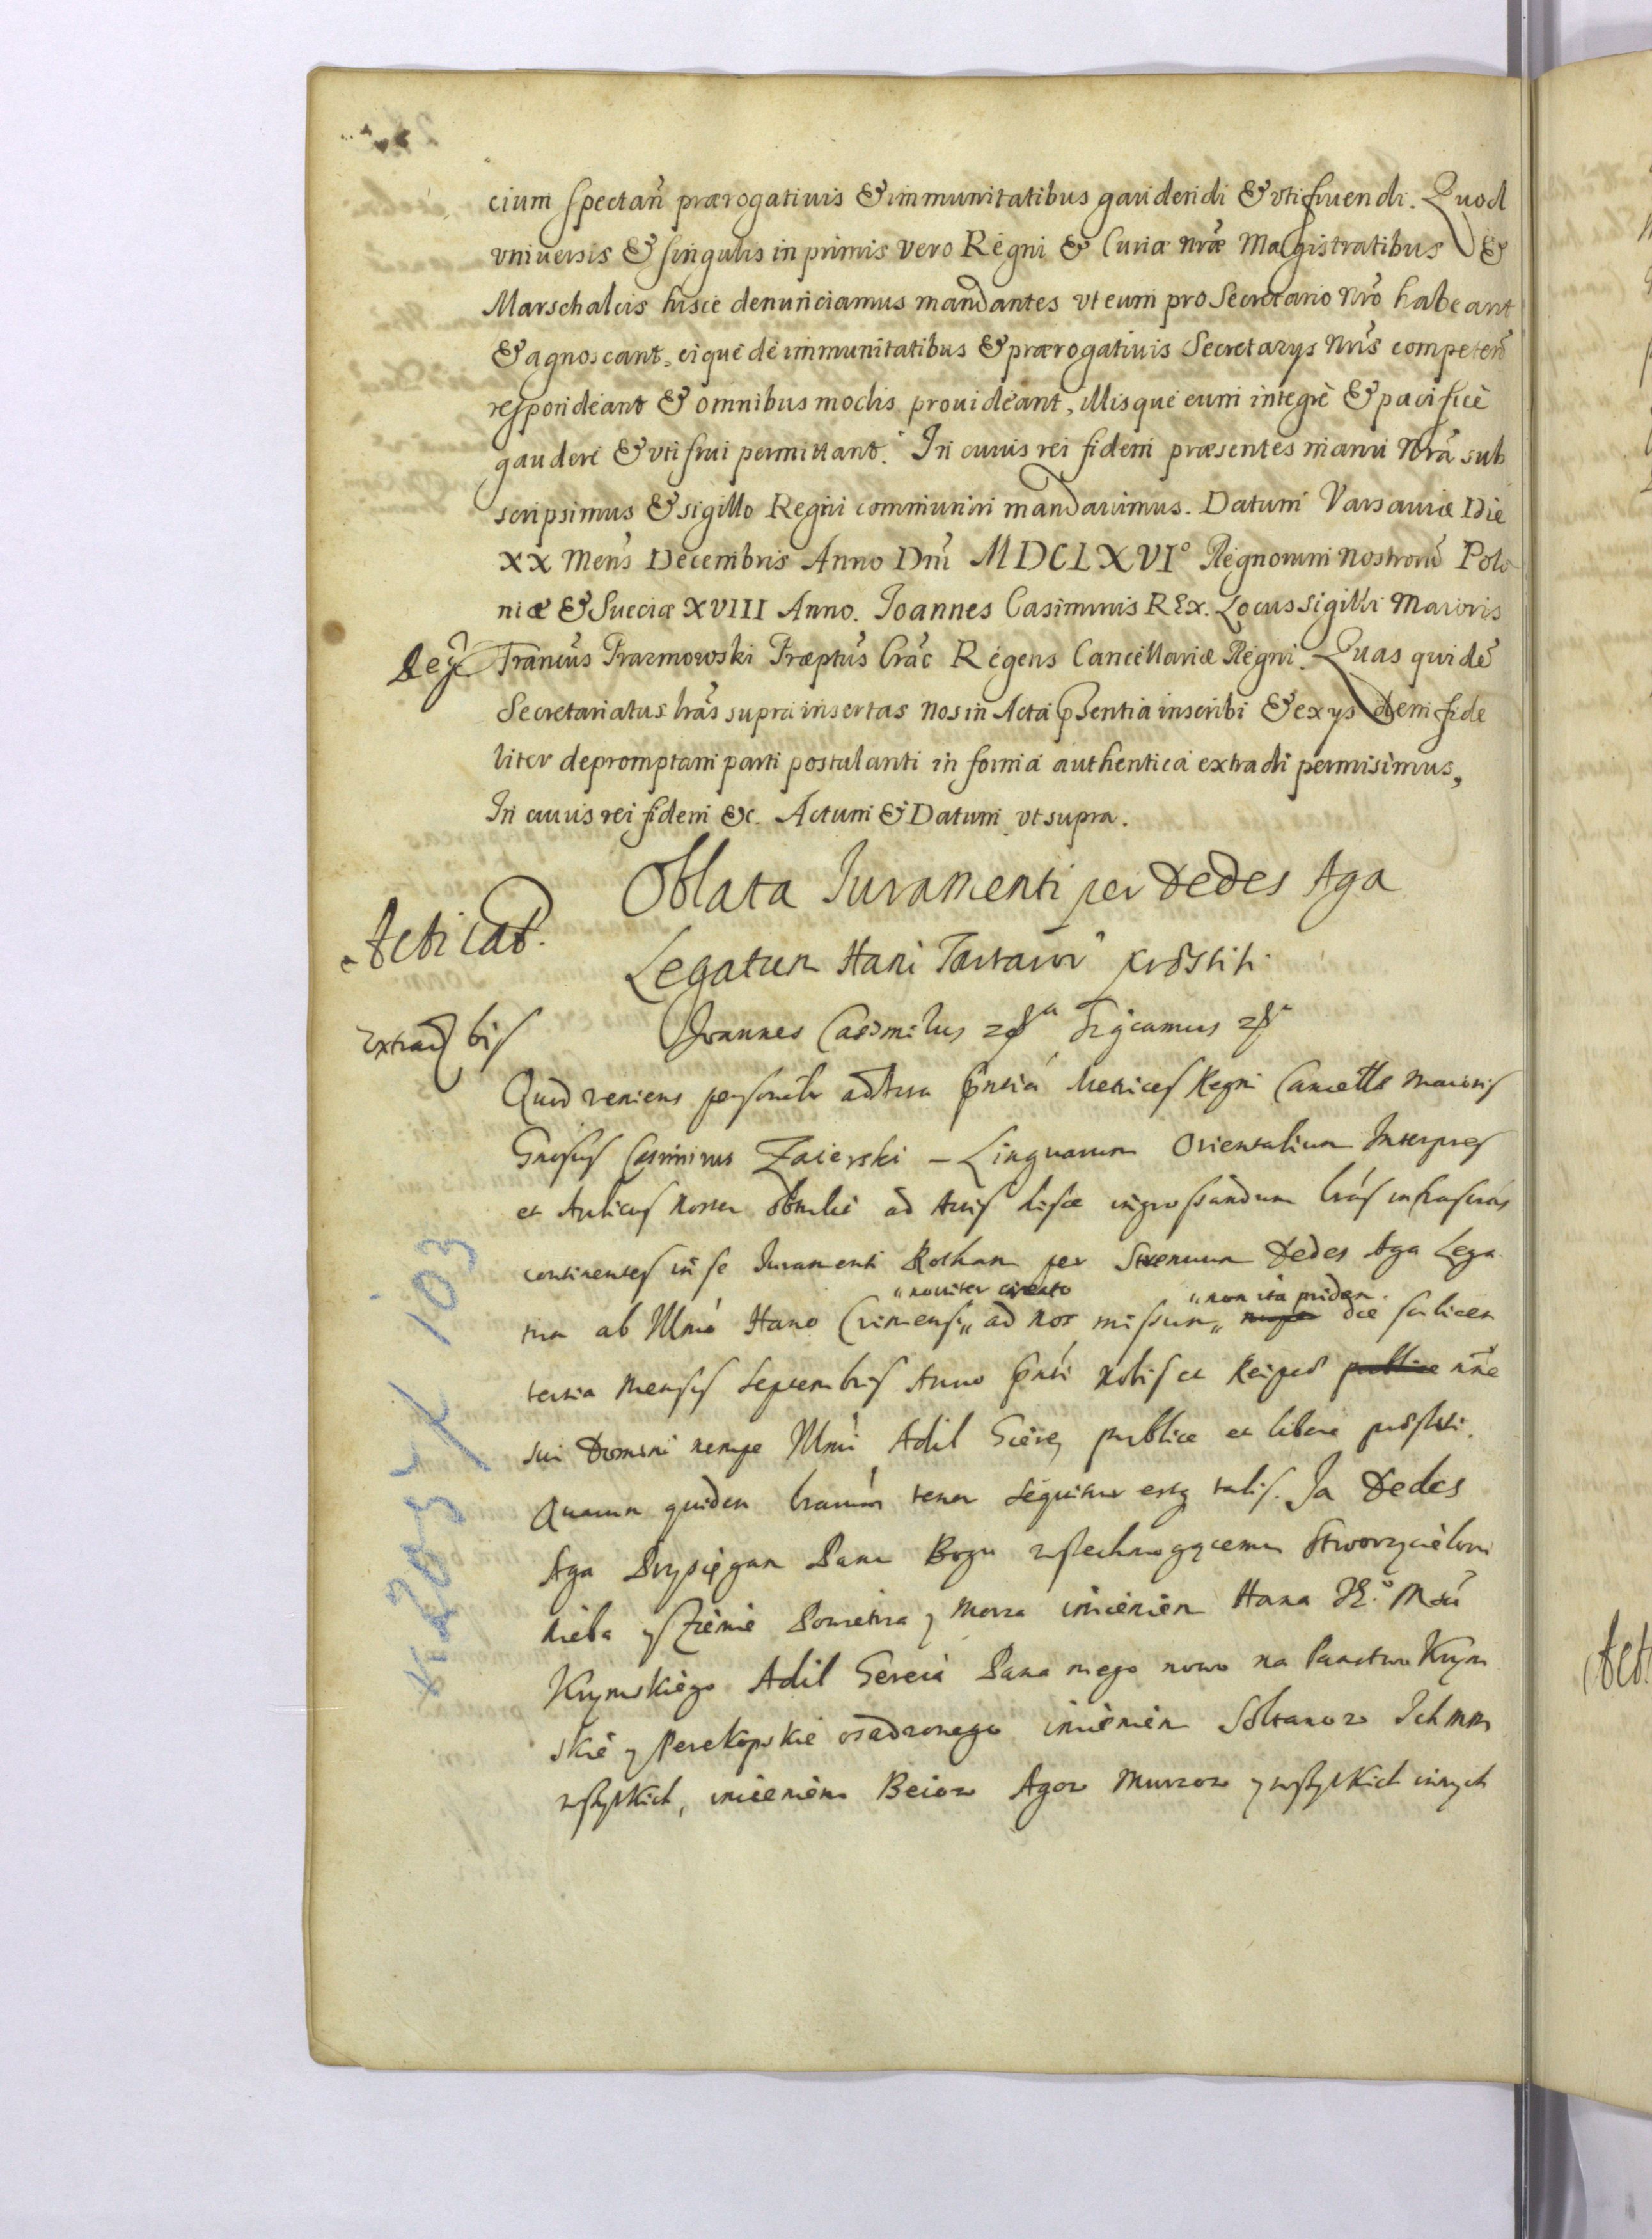 cium spectan̄ prærogatiuis & immunitatibus gaudendi & vtifruendi. Quod
vniuersis & singulis in primis vero Regni & Curiæ nr̄æ Magistratibus &
Marschalcis hisce denunciamus mandantes vt eum pro Secretario Nr̄o habeant
& agnoscant, eique de immunitatibus & prærogatiuis Secretarys Nr̄is competen̄
respondeant & omnibus modis prouideant, illisque eum integrè & pacificè
gaudere & vti frui permittant. In cuius rei fidem præsentes manu Nr̄a sub
scripsimus & sigillo Regni communiri mandauimus. Datum Varsauiæ Die
XX Mens̄ Decembris Anno Dn̄i MDCLXVI° Regnorum nostrorū Polo
niæ & Sueciæ XVIII Anno. Joannes Casimirus REX. Locus sigilli Maioris
Franc̄us Prazmowski Præptūs Crāc Regens Cancellariæ Regni. Quas quidē
Secretariatus lr̄as supra insertas nos in Acta p̄sentia inscribi & ex ys dem fide
liter depromptam parti postulanti in forma authentica extradi permisimus,
In cuius rei fidem &c. Actum & Datum vt supra.
Oblata Juramenti per Dedes Aga
Legatum Hani Tartaror̄ præstiti
Acticat.
Extrad bis
Joannes Casimirus Significamus
Quod veniens personalr ad Acta p̄ntia Metrices Regni Cancellæ Maioris
Gnosus Casimirus Zaierski – Linguarum Orientalium Interpres
et Aulicus noster obtulit ad Actis hisce ingrossandum lr̄as infrascrās
continentes in se Juramenti Rotham per Strenuum Dedes Aga Lega
„noviter creato „non ita pridem
tum ab Illmo Hano Crimensi „ ad nos missum „ nuper die scilicet
tertia Mensis Septembris Anno p̄nti Nobis et Reipub publice nn̄e
sui Domini nempe Illmi Adil Gierey publice et libere præstiti.
Quarum quidem lrarum tenor sequitur estq talis. Ja Dedes
Aga Przysięgam Panu Bogu wszechmogącemu Stworzycielowi
Nieba y Ziemie Powietrza y Morza imieniem Hana JE° Mśći
Krymskiego Adil Gereia Pana mego nowo na Panstwo Krym
skie y Perekopskie osadzonego imieniem Sołtanow Ich Mm
wszystkich, imieniem Beiow Agow Murzow y wszystkich innych
103